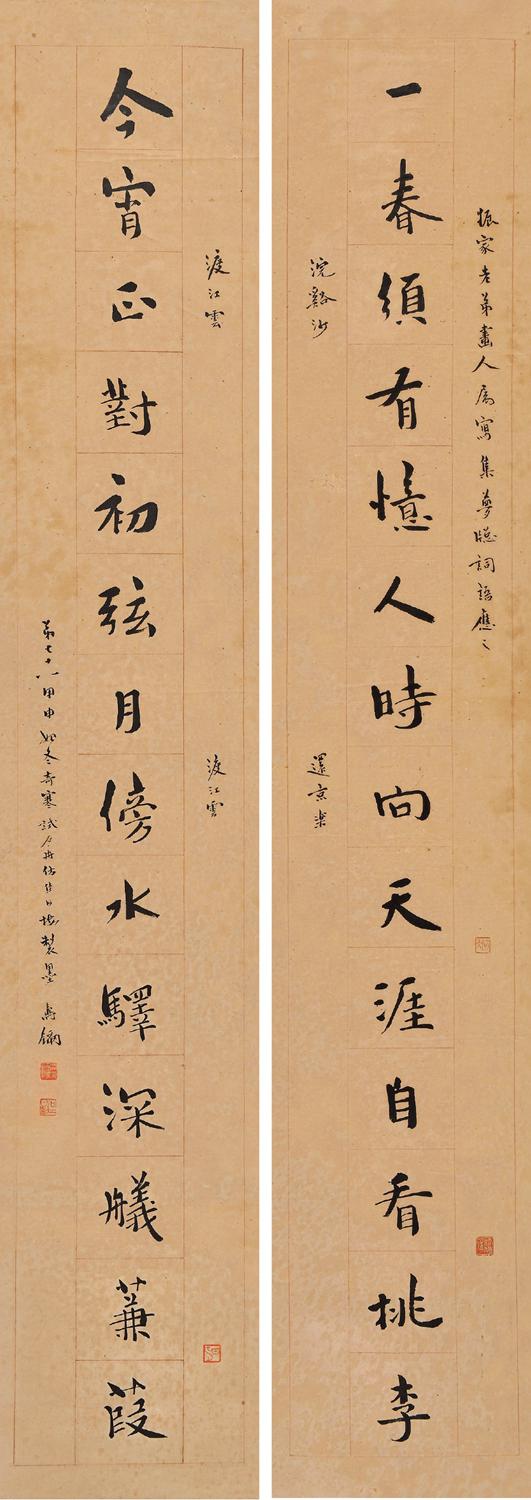 振家老弟畫人属寫集夢牕詞語應之
一春須有憶人時向天涯自看桃李
浣谿沙
還京樂
渡江雲
渡江雲
今宵正對初弦月傍水驛深艤蒹葭
弟七十八甲申始冬奇寒試 製墨 壽鑈